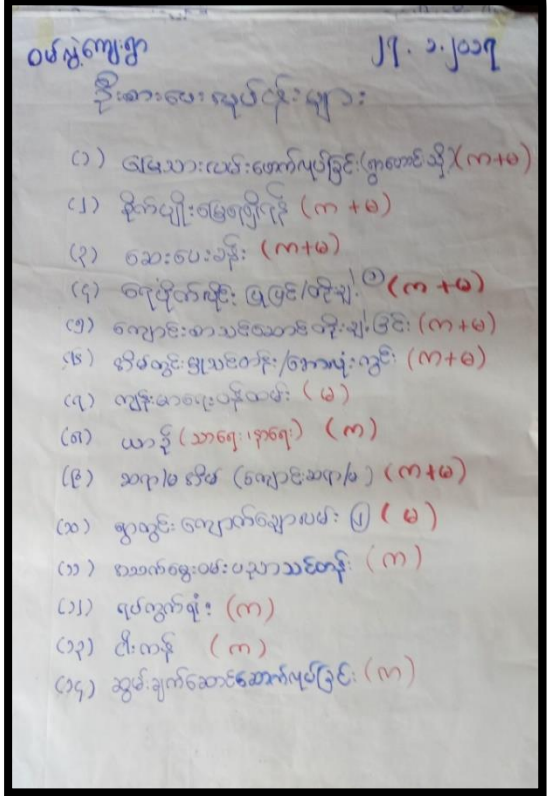 ဝမ်သွဲ့ကျေးရွာ ၂၇.၁.၂၀၁၇
ဦးစားပေးလုပ်ငန်းများ
(၁) မြေသားလမ်းဖောက်လုပ်ခြင်း(ရွာဟောင်းသို့)(က+မ)
(၂) စိုက်ပျိုးမြေရရှိရန် (က+မ)
(၃) ဆေးပေးခန်း (က+မ)
(၄) ရေပိုက်လိုင်း ပြုပြင်/တိုးချဲ့ (က+မ)
(၅) ကျောင်းစာသင်ဆောင်တိုးချဲ့ခြင်း (က+မ)
(၆) အိမ်တွင်းမှုသင်တန်း/ဘောလုံးကွင်း (က+မ)
(၇) ကျန်းမာရေးဝန်ထမ်း (မ)
(၈) ယာဉ် (သာရေး၊နာရေး) (က)
(၉) ဆရာ/မအိမ် (ကျောင်းဆရာ/မ) (က+မ)
(၁၀) ရွာတွင်းကျောက်ချောလမ်း (မ)
(၁၁) အသက်မွေးဝမ်းပညာသင်တန်း (က)
(၁၂) ရပ်ကွက်ရုံး (က)
(၁၃) ငါးကန် (က)
(၁၄) ဆွမ်းချက်ဆောင်ဆောက်လုပ်ခြင်း (က)